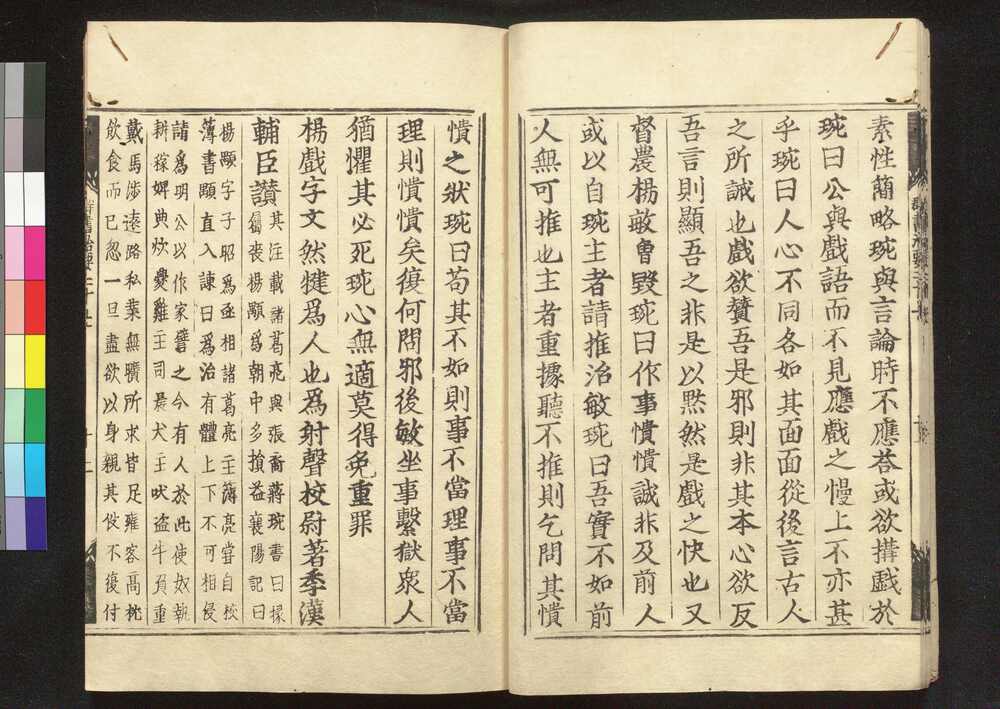 素性簡略琬與言論時不應荅或欲搆戲於
琬曰公與戲語而不見應戲之慢上不亦甚
乎琬曰人心不同各如其面面從後言古人
之所誡也戲欲贊吾是邪則非其本心欲反
吾言則顯吾之非是以黙然是戲之快也又
督農楊敏曾毀琬曰作事憒憒誠非及前人
或以自琬主者請推治敏琬曰吾實不如前
人無可推也主者重據聽不推則乞問其憒
憒之狀琬曰苟其不如則事不當理事不當
理則憒憒矣復何問邪後敏坐事繫獄衆人
猶懼其必死琬心無適莫得免重罪
楊戲字文然犍爲人也爲射聲校尉著季漢
輔臣讃其注載諸葛亮與張裔蔣琬書曰掾
屬喪楊顒爲朝中多損益襄陽記曰
楊顒字子昭爲丞相諸葛亮主簿亮嘗自校
薄書顒直入諫曰爲治有體上下不可相侵
請爲明公以作家譬之今有人於此使奴執
耕稼婢典炊爨雞主司晨犬主吠盗牛負重
戴馬涉遠路私業無曠所求皆足雍容高桃
飲食而已忽一旦盡欲以身親其伇不復付
群書治要二十九